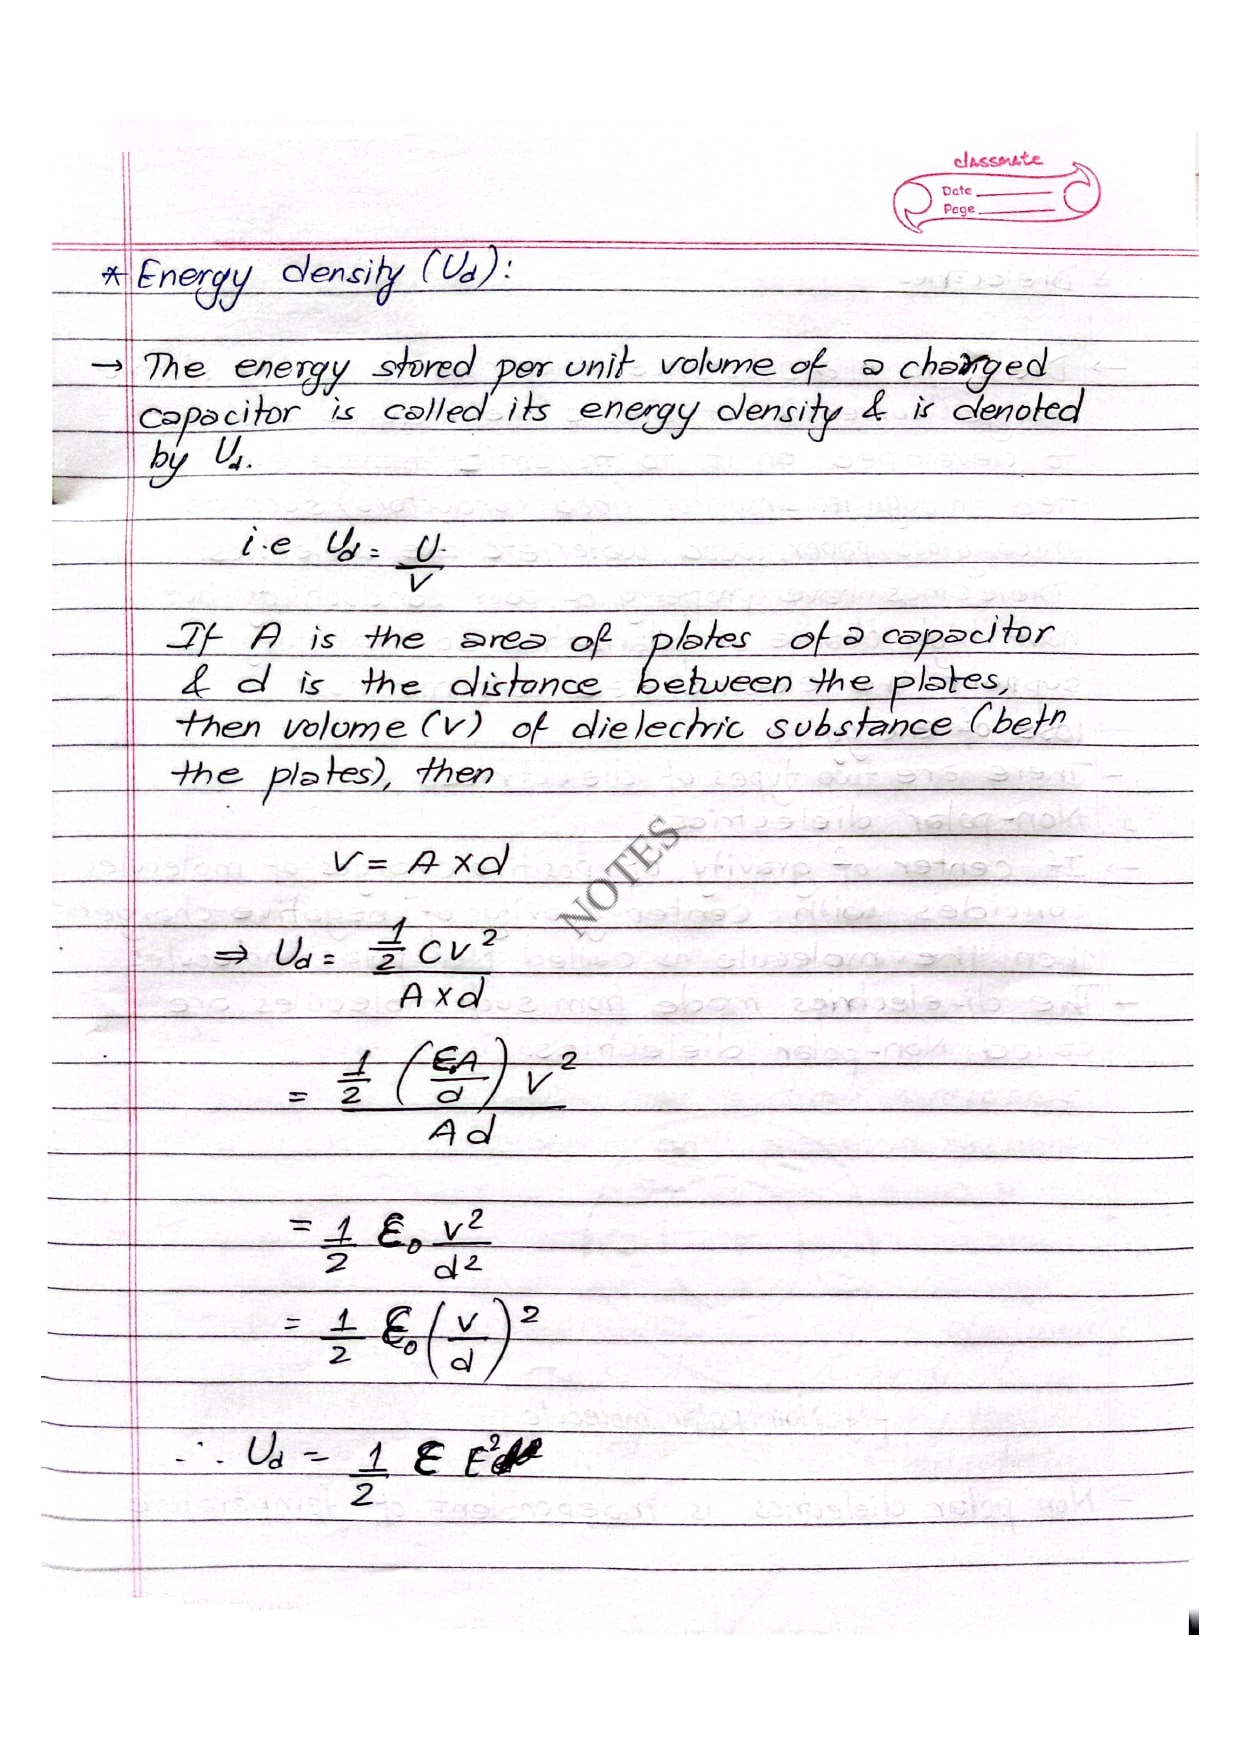 classmate
Date
Page
* Energy density (Ud):
→ The energy stored per unit volume of a charged
capacitor is called its energy density & is denoted
by Ud.
i.e Ud = U/V
If A is the area of plates of a capacitor
& d is the distance between the plates,
then volume (V) of dielectric substance (betn
the plates), then
V = A x d
NOTES
⇒ Ud = 1/2 CV² / A x d
= 1/2 (ε₀A/d) V² / Ad
= 1/2 ε₀ V²/d²
= 1/2 ε₀ (V/d)²
∴ Ud = 1/2 ε E²